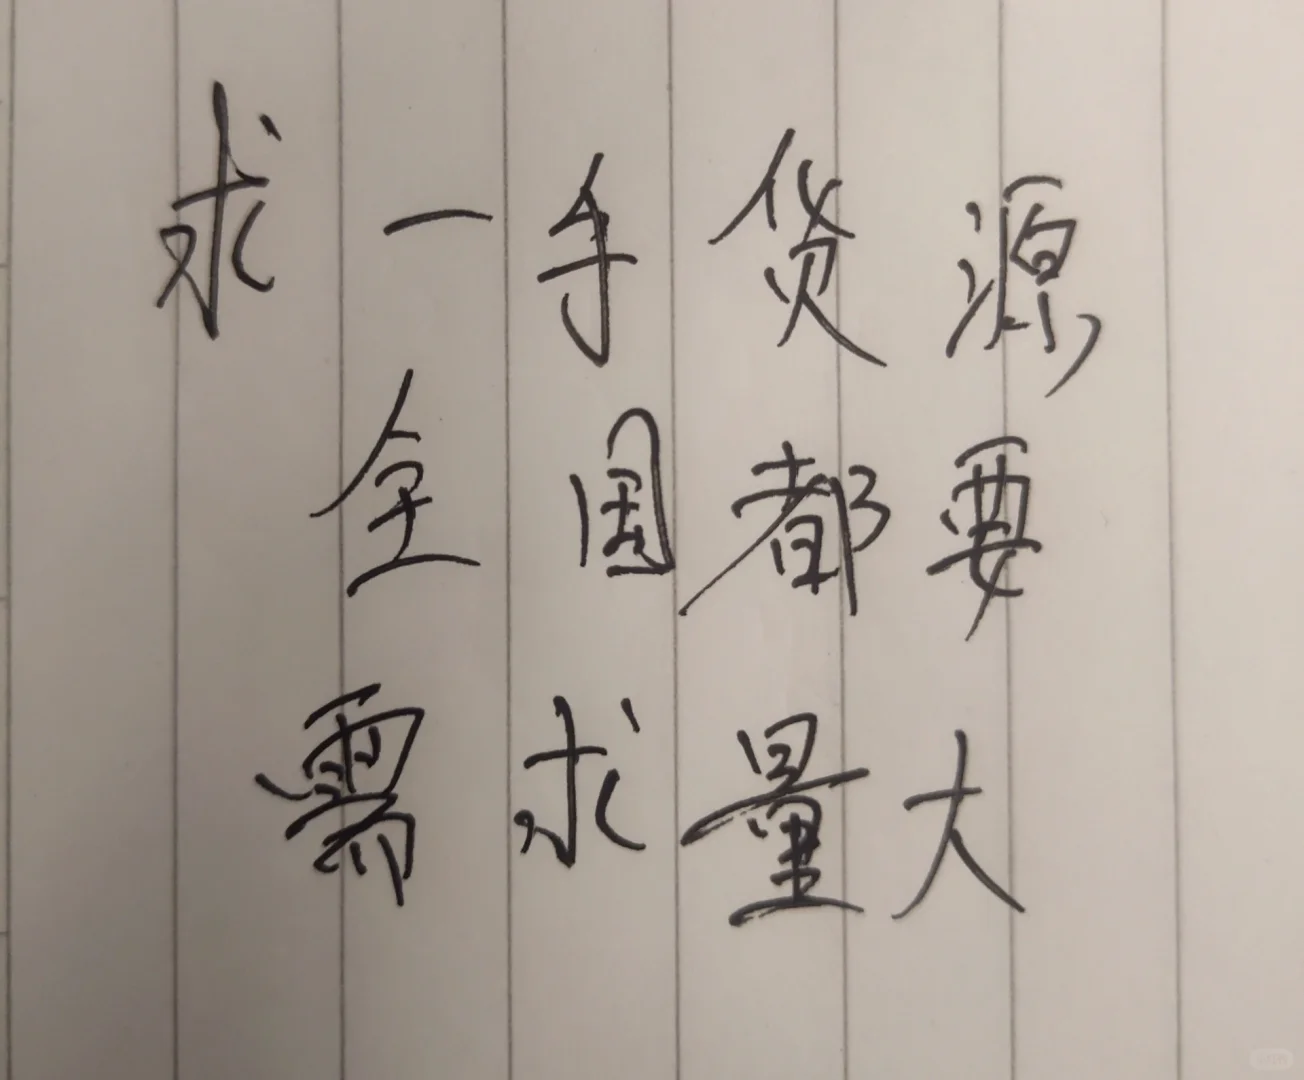 求一手货源
全国都要
需求量大